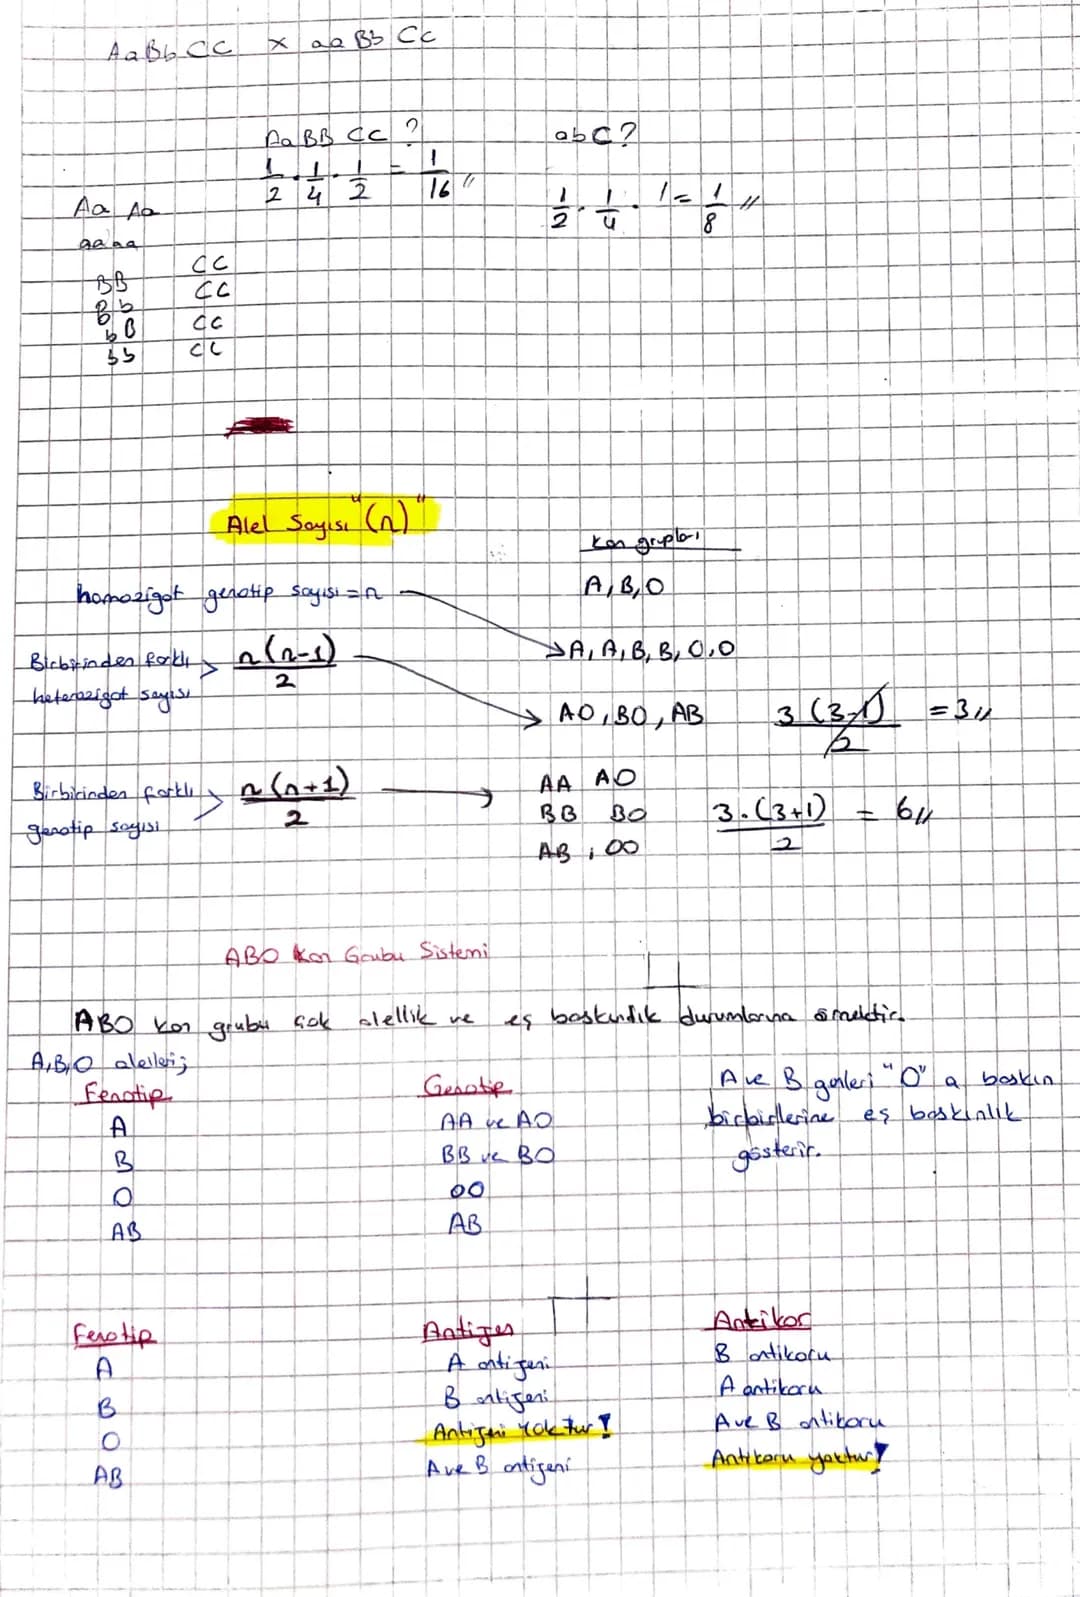 AaBbCC x aaBbCc
AaBBCC ?
1/2 . 1/4 . 1/2 = 1/16 //
abC ?
1/2 . 1/4 . 1 = 1/8 //
Aa Aa
aa aa
BB
Bb
bB
bb
CC
CC
Cc
Cc
Alel Sayısı "(n)"
Kan grupları
homozigot genotip sayısı = n
A, B, O
Birbirinden farklı heterozigot sayısı > n(n-1)/2
A, A, B, B, O, O
AO, BO, AB
3(3-1)/2 = 3 //
Birbirinden farklı genotip sayısı > n(n+1)/2
AA AO
BB BO
AB, OO
3.(3+1)/2 = 6 //
ABO Kan Grubu Sistemi
ABO kan grubu çok alellik ve eş baskınlık durumlarına örnektir.
A,B,O alelleri;
Fenotip Genotip
A AA ve AO
B BB ve BO
O OO
AB AB
A ve B genleri "O" a baskın
birbirlerine eş baskınlık
gösterir.
Fenotip Antijen Antikor
A A antijeni B antikoru
B B antijeni A antikoru
O Antijeni Yoktur! A ve B antikoru
AB A ve B antijeni Antikoru yoktur!